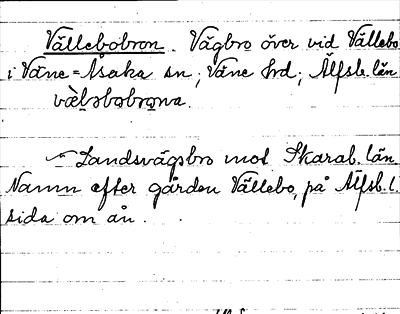 Vällebobron. Vägbro över vid Vällebo
i Väne-Åsaka sn; Väne hrd; Älfsb. län
væ̀lləbəbrəna.
Landsvägsbro mot Skarab. län.
Namn efter gården Vällebo, på Älfsb. l.
sida om ån.